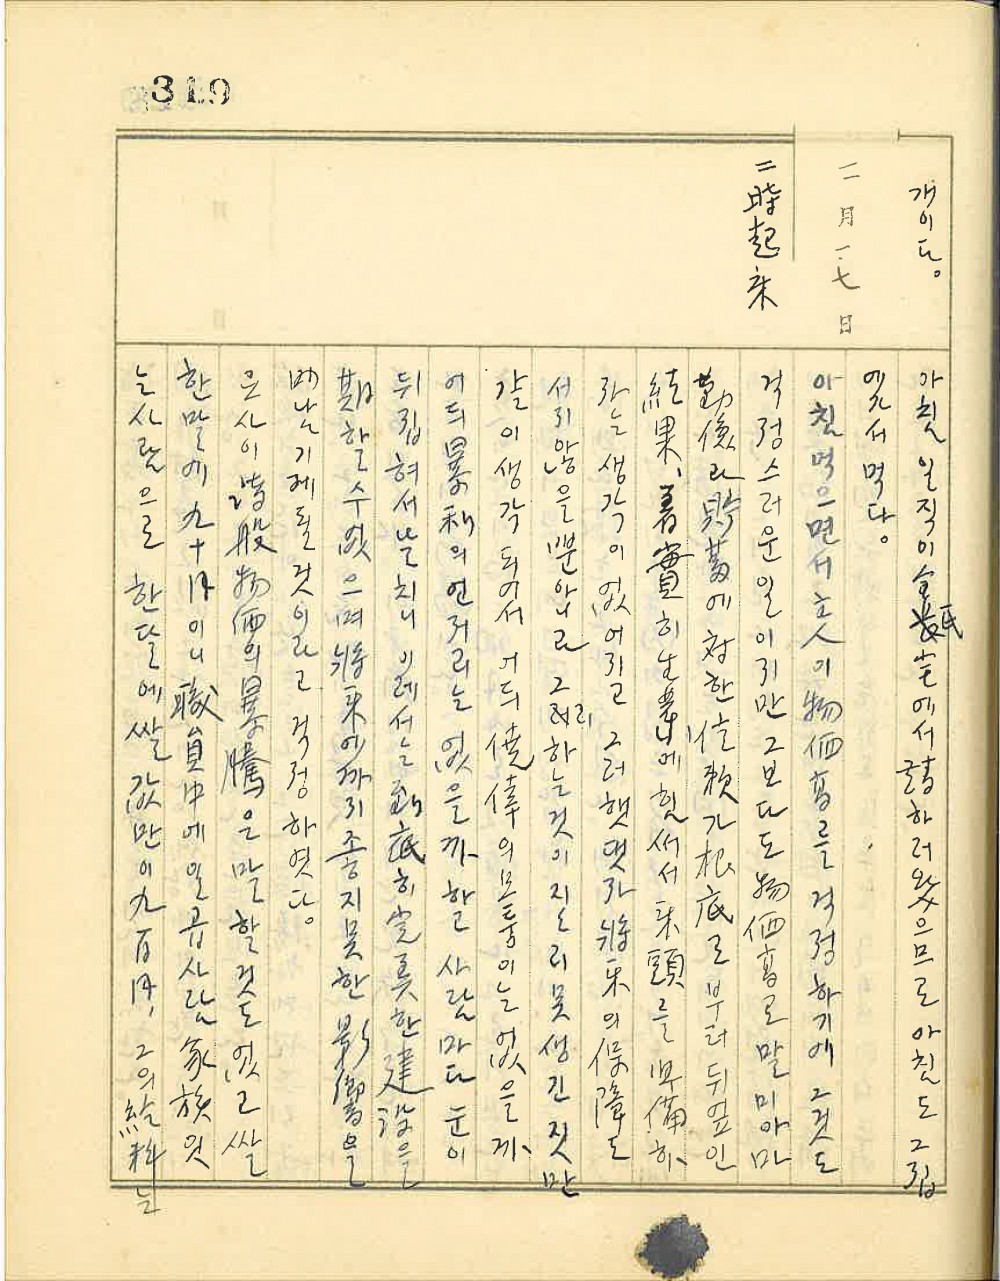 319
개이다。
二月一七日
二時起床
아침 일직이 金長氏宅에서 請하러 왔으므로 아침도 그 집
에서 먹다。
아침 먹으면서 主人이 物価高를 걱정하기에 그것도
걱정스러운 일이지만 그보다도 物価高로 말미아마
勤儉과 貯蓄에 対한 信頼가 根底로부터 뒤엎인
結果、着實히 生業에 힘써서 来頭를 準備하
라는 생각이 없어지고 그러햇댓자 將来의 保障도
서지 않을 뿐 아니라 그러하는 것이 지도리 못생긴 짓만
같이 생각되어서 어듸 僥倖의 모퉁이는 없을가
어듸 暴利의 언저리는 없을까 하고 사람마다 눈이
뒤집혀서 날치니 이레서는 到底히 完美한 建設을
期할 수 없으며 將来에까지 좋지 못한 影響을
떠남기게 될 것이라고 걱정하엿다。
은사이 諸般 物価의 暴騰은 말할 것도 없고 쌀
한 말에 九十円이니 職員中에 일곱 사람 家族 있
는 사람으로 한 달에 쌀값만이 九百円、그의 給料는